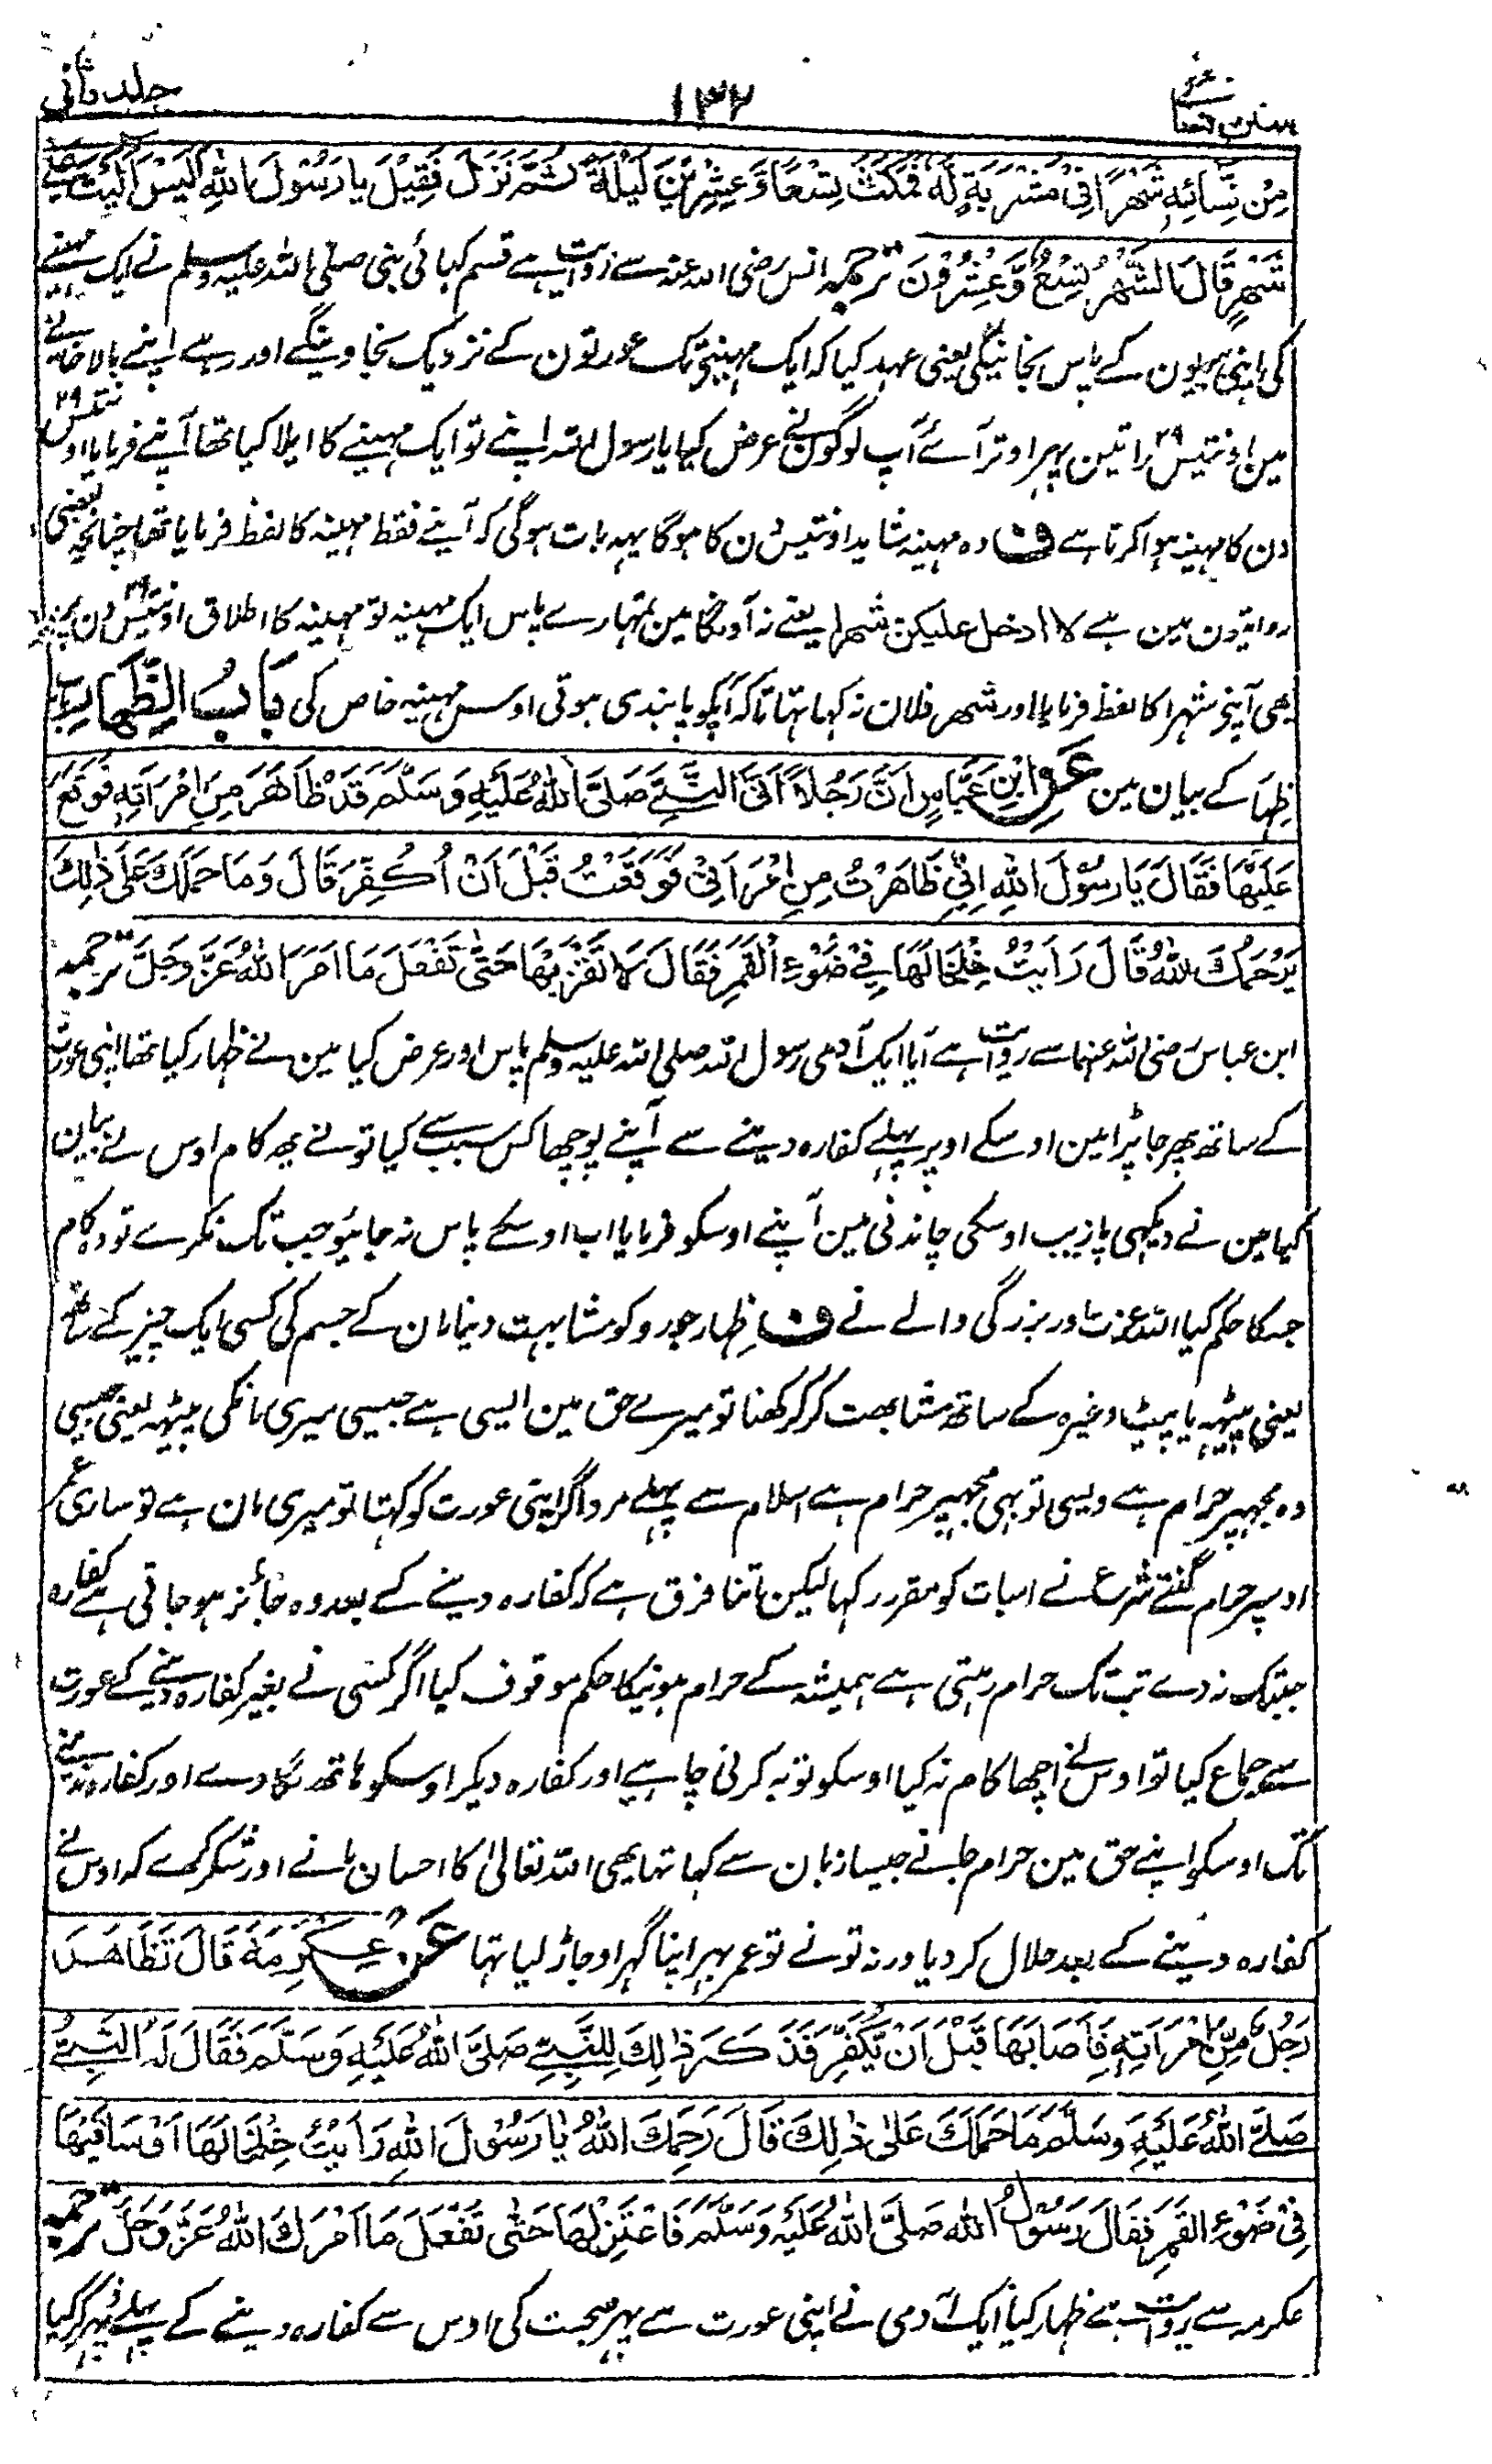 سنن نسائی ۱۳۲ جلد ثانی
مِنْ نِّسَائِهٖ شَهْرًا فِیْ مَشْرَبَةٍ لَّهٗ فَمَكَثَ تِسْعًا وَّعِشْرِیْنَ لَیْلَةً ثُمَّ نَزَلَ فَقِیْلَ یَا رَسُوْلَ اللهِ اَلَیْسَ اٰلَیْتَ عَلٰی
شَهْرٍ قَالَ الشَّهْرُ تِسْعٌ وَّعِشْرُوْنَ ترجمہ انس رضی اللہ عنہ سے روایت ہے قسم کہائی نبی صلی اللہ علیہ وسلم نے ایک مہینے
کی اپنی بیبیون کے پاس نجانیکی یعنی عہد کیا کہ ایک مہینے تک عورتون کے نزدیک نجاوینگے اور رہے اپنے بالاخانے
مین اونتیس ۲۹ راتین پہر اوتر آئے آپ لوگون نے عرض کیا یا رسول اللہ اپنے تو ایک مہینے کا ایلا کیا تھا آپنے فرمایا اونتیس ۲۹
دن کا مہینہ ہوا کرتا ہے ف وہ مہینہ شاید اونتیس دن کا ہوگا یہہ بات ہوگی کہ آپنے فقط مہینہ کا لفظ فرمایا تھا چنانچہ بعضی
روایتون مین ہے لا ادخل علیکن شہرا یعنے نہ آونگا مین تمہارے پاس ایک مہینہ تو مہینہ کا اطلاق اونتیس ۲۹ دن پر
بھی آپنے شہرا کا لفظ فرمایا اور شہر فلان نہ کہا تہا تاکہ آپکو پابندی ہوتی اوس مہینہ خاص کی بَابُ الظِّهَارِ باب
ظہار کے بیان مین عَنِ ابْنِ عَبَّاسٍ اَنَّ رَجُلًا اَتَی النَّبِیَّ صَلَّی اللهُ عَلَیْهِ وَسَلَّمَ قَدْ ظَاهَرَ مِنِ امْرَاَتِهٖ فَوَقَعَ
عَلَیْهَا فَقَالَ یَا رَسُوْلَ اللهِ اِنِّیْ ظَاهَرْتُ مِنِ امْرَاَتِیْ فَوَقَعْتُ قَبْلَ اَنْ اُكَفِّرَ قَالَ وَمَا حَمَلَكَ عَلٰی ذٰلِكَ
یَرْحَمُكَ اللهُ قَالَ رَاَیْتُ خَلْخَالَهَا فِیْ ضَوْءِ الْقَمَرِ فَقَالَ لَا تَقْرَبْهَا حَتّٰی تَفْعَلَ مَا اَمَرَ اللهُ عَزَّ وَجَلَّ ترجمہ
ابن عباس رضی اللہ عنہما سے روایت ہے آیا ایک آدمی رسول اللہ صلی اللہ علیہ وسلم پاس اور عرض کیا مین نے ظہار کیا تھا اپنی عورت
کے ساتھ پھر جا پڑا مین اوسکے اوپر پہلے کفارہ دینے سے آپنے پوچھا کس سبب سے کیا تو نے یہ کام اوس نے بیان
کیا مین نے دیکہی پازیب اوسکی چاندنی مین آپنے اوسکو فرمایا اب اوسکے پاس نہ جائیو جب تک نکرے تو وہ کام
جسکا حکم کیا اللہ عزت اور بزرگی والے نے ف ظہار جورو کو مشابہت دینا مان کے جسم کی کسی ایک چیز کے ساتھ
یعنی پیٹھہ یا پیٹ وغیرہ کے ساتھ مشابھت کر کر کھنا تو میرے حق مین ایسی ہے جیسی میری مانکی پیٹھہ یعنی جیسی
وہ مجہپر حرام ہے ویسی تو بھی مجہپر حرام ہے اسلام سے پہلے مرد اگر اپنی عورت کو کہتا تو میری مان ہے تو ساری عمر
اوسپر حرام گنتے شرع نے اسبات کو مقرر رکہا لیکن اتنا فرق ہے کہ کفارہ دینے کے بعد وہ جائز ہو جاتی ہے کفارہ
جبتک نہ دے تب تک حرام رہتی ہے ہمیشہ کے حرام ہونیکا حکم موقوف کیا اگر کسی نے بغیر کفارہ دینے کے عورت
سے جماع کیا تو اوس نے اچھا کام نہ کیا اوسکو توبہ کرنی چاہیے اور کفارہ دیکر اوسکو ہاتھ لگاوے اور کفارہ دینے
تک اوسکو اپنے حق مین حرام جانے جیسا زبان سے کہا تہا بھی اللہ تعالیٰ کا احسان مانے اور شکر کرے کہ اوس نے
کفارہ دینے کے بعد حلال کر دیا ورنہ تو نے تو عمر بہر اپنا گہر اوجاڑ لیا تہا عَنْ عِكْرِمَةَ قَالَ تَظَاهَرَ
رَجُلٌ مِّنِ امْرَاَتِهٖ فَاَصَابَهَا قَبْلَ اَنْ یُّكَفِّرَ فَذَكَرَ ذٰلِكَ لِلنَّبِیِّ صَلَّی اللهُ عَلَیْهِ وَسَلَّمَ فَقَالَ لَهُ النَّبِیُّ
صَلَّی اللهُ عَلَیْهِ وَسَلَّمَ مَا حَمَلَكَ عَلٰی ذٰلِكَ قَالَ رَحِمَكَ اللهُ یَا رَسُوْلَ اللهِ رَاَیْتُ خَلْخَالَهَا اَوْ سَاقَیْهَا
فِیْ ضَوْءِ الْقَمَرِ فَقَالَ رَسُوْلُ اللهِ صَلَّی اللهُ عَلَیْهِ وَسَلَّمَ فَاعْتَزِلْهَا حَتّٰی تَفْعَلَ مَا اَمَرَكَ اللهُ عَزَّ وَجَلَّ ترجمہ
عکرمہ سے روایت ہے ظہار کیا ایک آدمی نے اپنی عورت سے پہر صحبت کی اوس سے کفارہ دینے کے پہلے پہر ذکر کیا